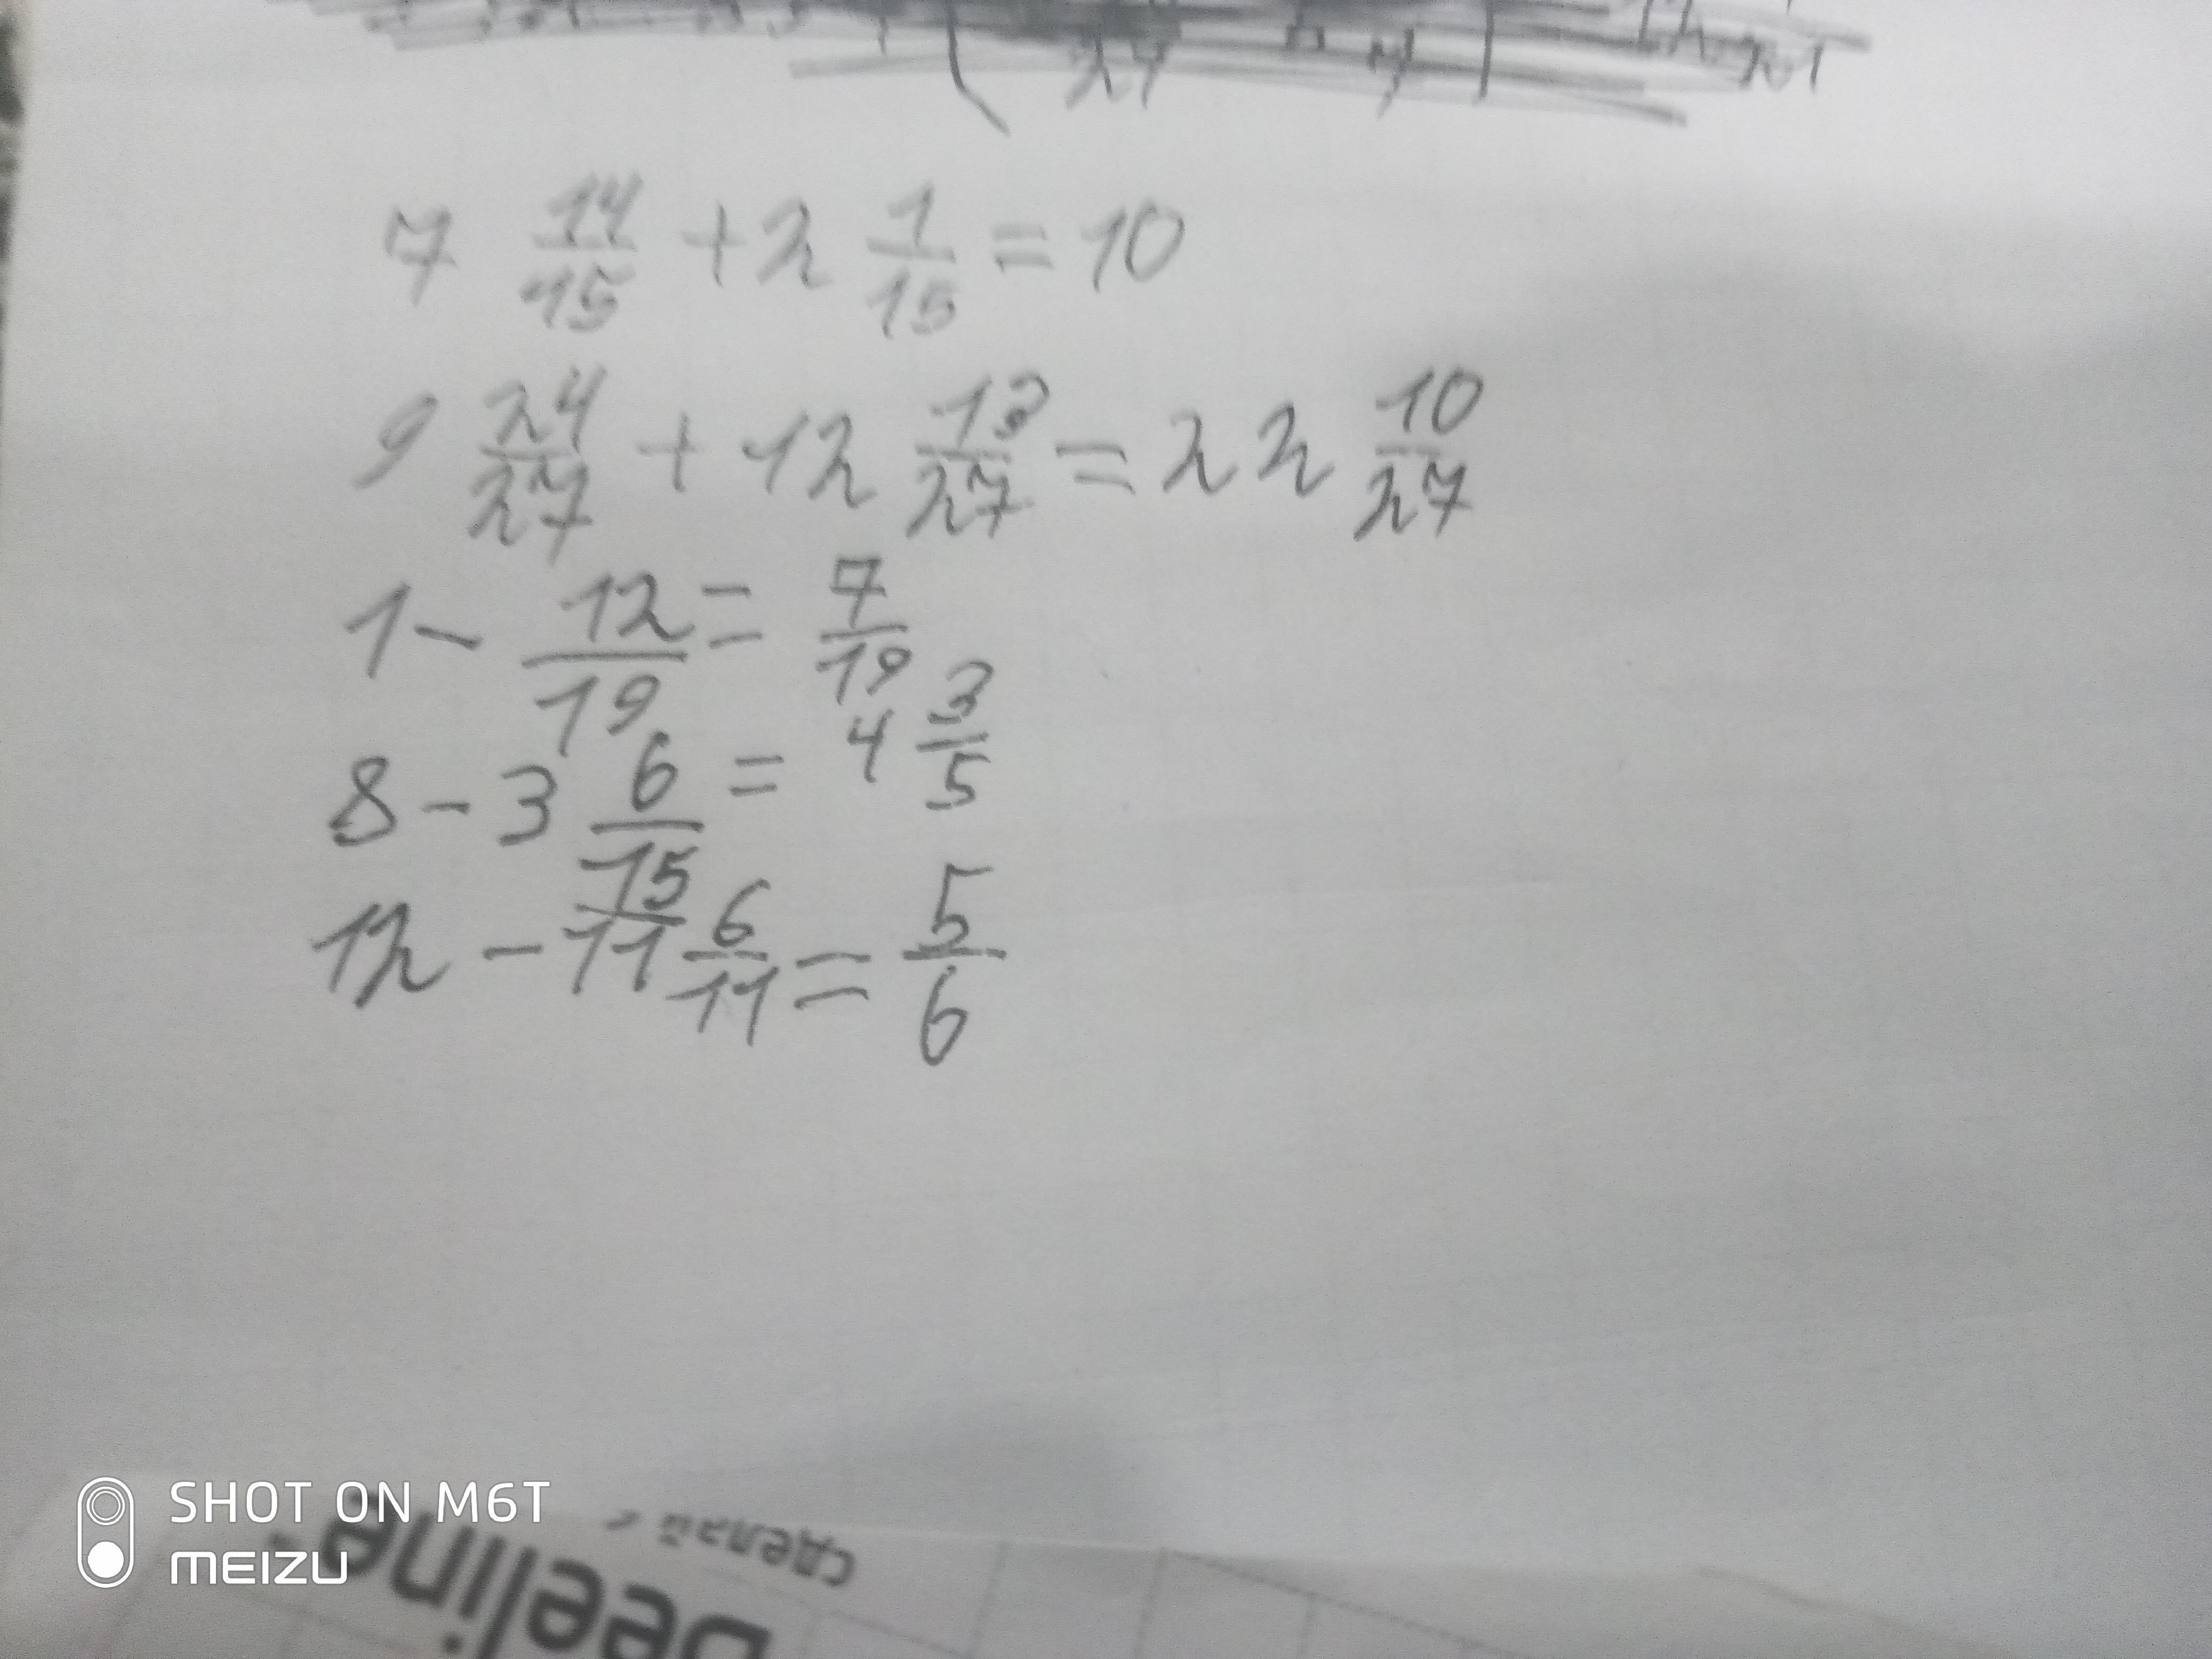 7 14/15 + 2 1/15 = 10
9 24/27 + 12 13/27 = 22 10/27
1 - 12/19 = 7/19
8 - 3 6/15 = 4 3/5
12 - 11 6/11 = 5/6
SHOT ON M6T
MEIZU
сделай
beeline